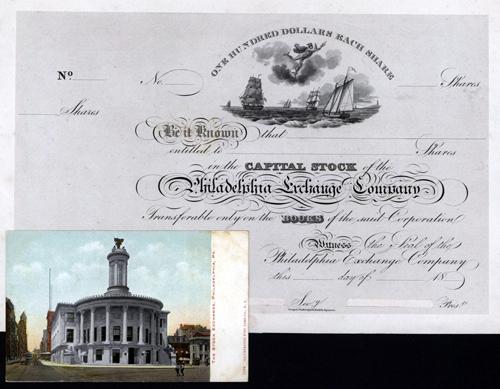 ONE HUNDRED DOLLARS EACH SHARE
No No. Shares
Shares
Be it Known that
entitled to Shares
in the CAPITAL STOCK of the
Philadelphia Exchange Company
Transferable only on the BOOKS of the said Corporation
Witness the Seal of the
Philadelphia Exchange Company
this day of 18
Secy. Prest.
THE STOCK EXCHANGE, PHILADELPHIA, PA.